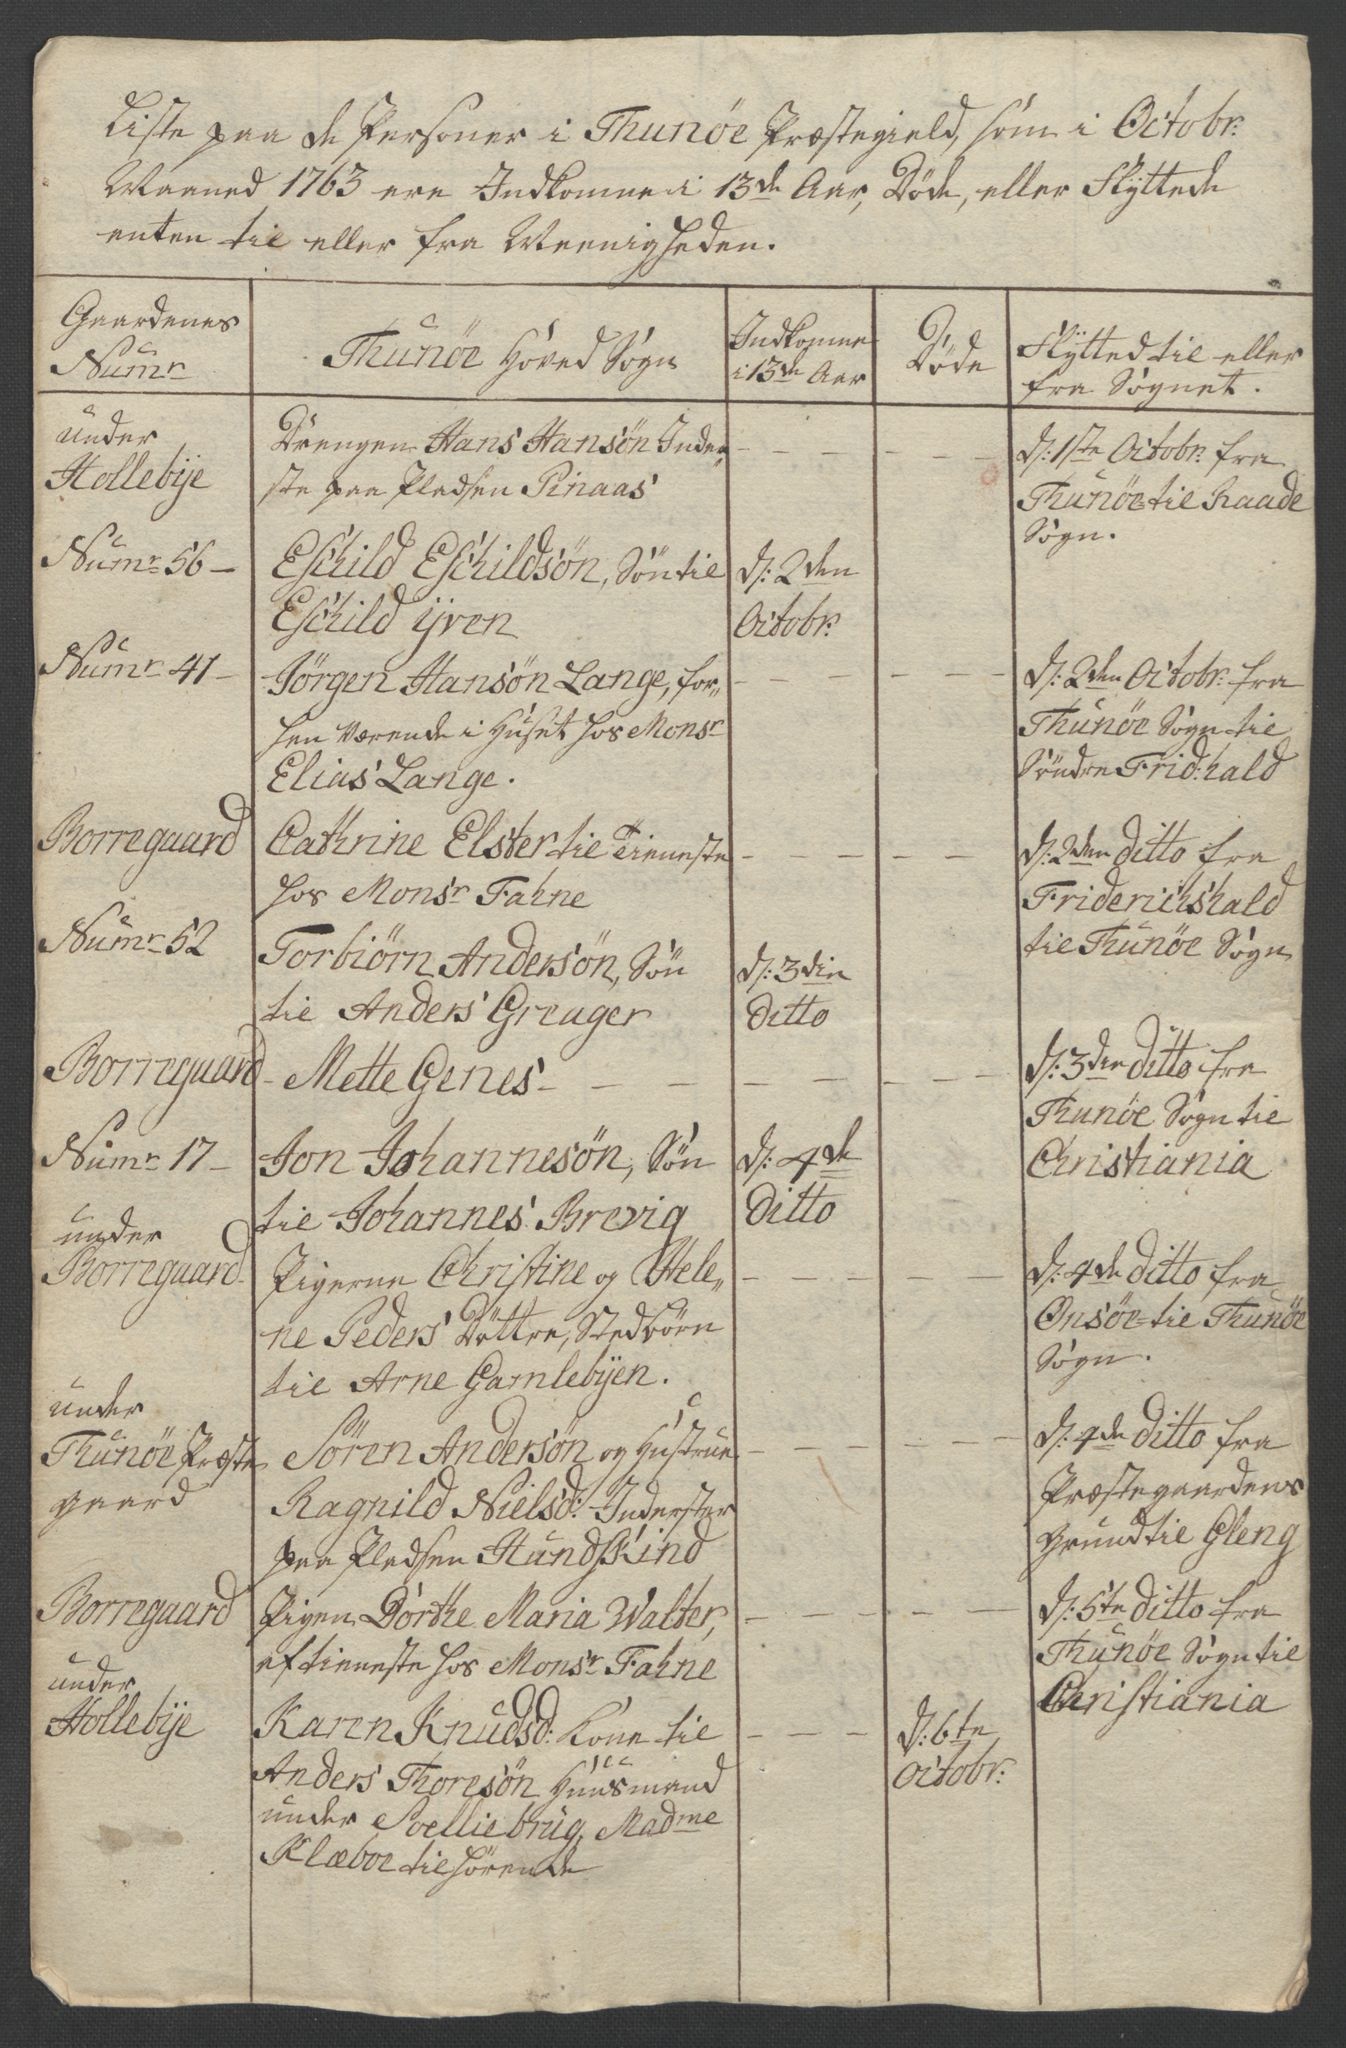 Liste paa de Personer i Thunøe Præstegield, som i Octobr:
Maaned 1763 ere Indkomne i 13de Aar, Døde, eller Flyttede
enten til eller fra Meenigheden.
Gaardenes
Numr
Thunøe Hoved Sogn
Indkomne
i 13de Aar
Døde
Flytted til eller
fra Sognet.
under
Hollebÿe
Drengen Hans Hansøn Inder
ste paa Pladsen Pinaas
d: 1ste Octobr: fra
Thunøe til Raade
Sogn.
Numr 56
Eschild Eschildsøn, Søn til
Eschild ÿven
d: 2den
Octobr:
Numr 41
Jørgen Hansøn Lange, for„
hen værende i Huset hos Monsr
Elias Lange.
d: 2den Octobr: fra
Thunøe Sogn til
Søndre Frid:hald
Borregaard
Cathrine Elster til Tieneste
hos Monsr Fahne
d: 2den ditto fra
Friderichshald
til Thunøe Sogn
Numr 52
Torbiørn Andersøn, Søn
til Anders Greager
d: 3die
ditto
Borregaard
Mette Genes
d: 3die ditto fra
Thunøe Sogn til
Christiania
Numr 17
Jon Johannesøn, Søn
til Johannes Brevig
d: 4de
ditto
under
Borregaard
Pigerne Christine og Hele„
ne Peders Døttre, Stedbørn
til Arne Gamlebÿen.
d: 4de ditto fra
Onsøe til Thunøe
Sogn.
under
Thunøe Præste
gaard
Søren Andersøn og Hustrue
Ragnild Nielsd: Inderster
paa Pladsen Hundskind
d: 4de ditto fra
Præstegaardens
Grund til Gleng
Borregaard
Pigen Dorthe Maria Walter,
af tieneste hos Monsr Fahne
d: 5te ditto fra
Thunøe Sogn til
Christiania
under
Hollebÿe
Karen Knudsd: Kone til
Anders Thoresøn Huusmand
under Soelliebrug, Madme
Klæboe tilhørende
d: 6te
Octobr: